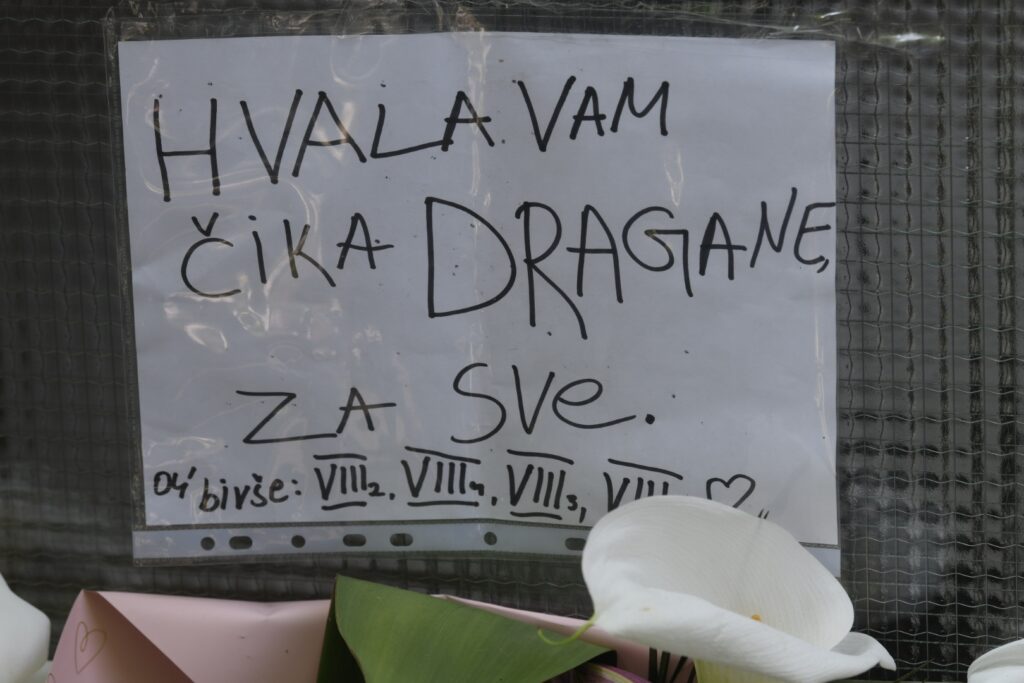 HVALA VAM
ČIKA DRAGANE,
ZA SVE.
04' bivše: VIII2, VIII4, VIII3, VIII